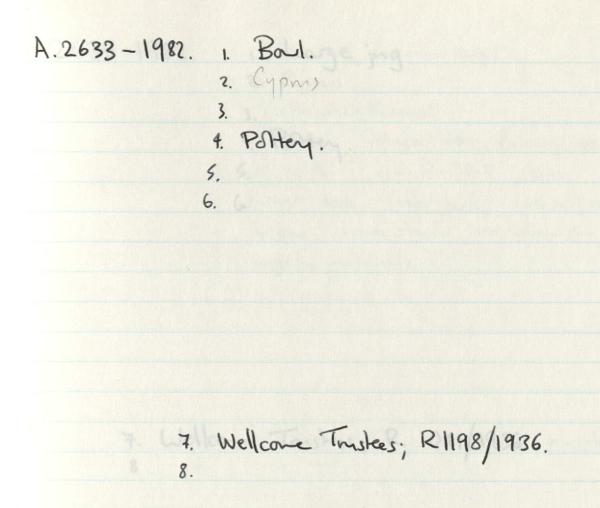 A.2633-1982. 1. Bowl.
2. Cyprus
3.
4. Pottery.
5.
6.
7. Wellcome Trustees; R1198/1936.
8.